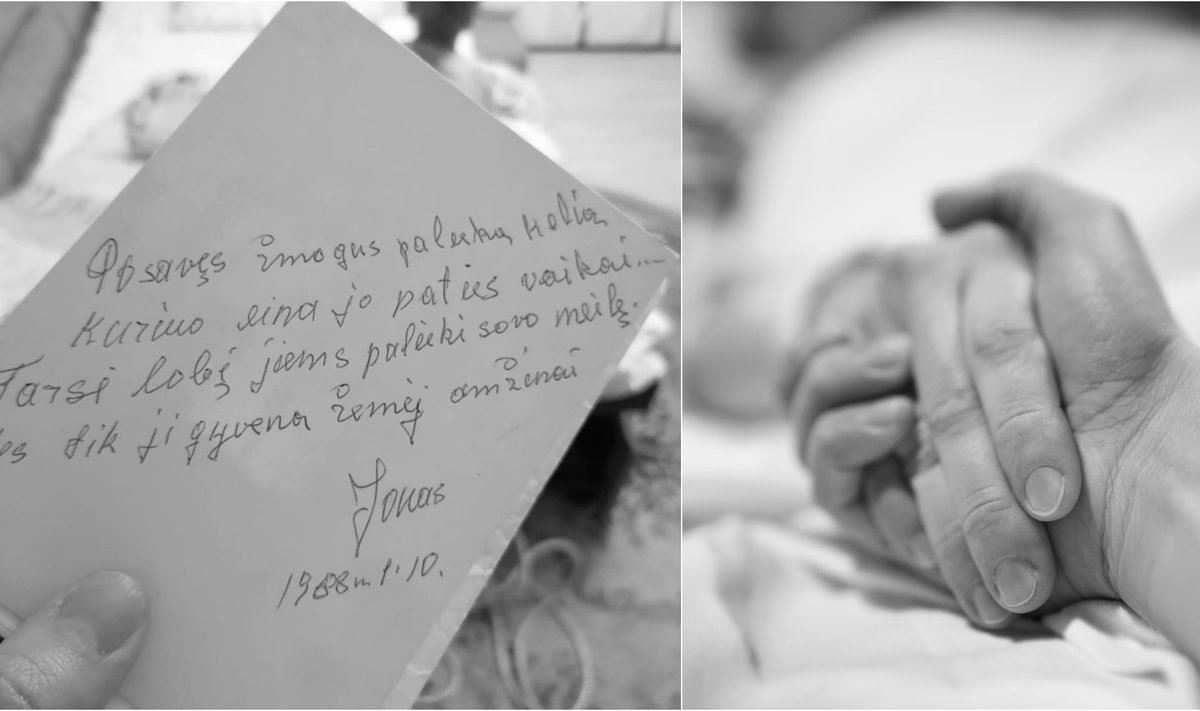 Po savęs žmogus palieka kelią
Kuriuo eina jo paties vaikai...
Tarsi lobį jiems palieki savo meilę.
tik ji gyvena žemėj amžinai
Jonas
1988 m 1. 10.